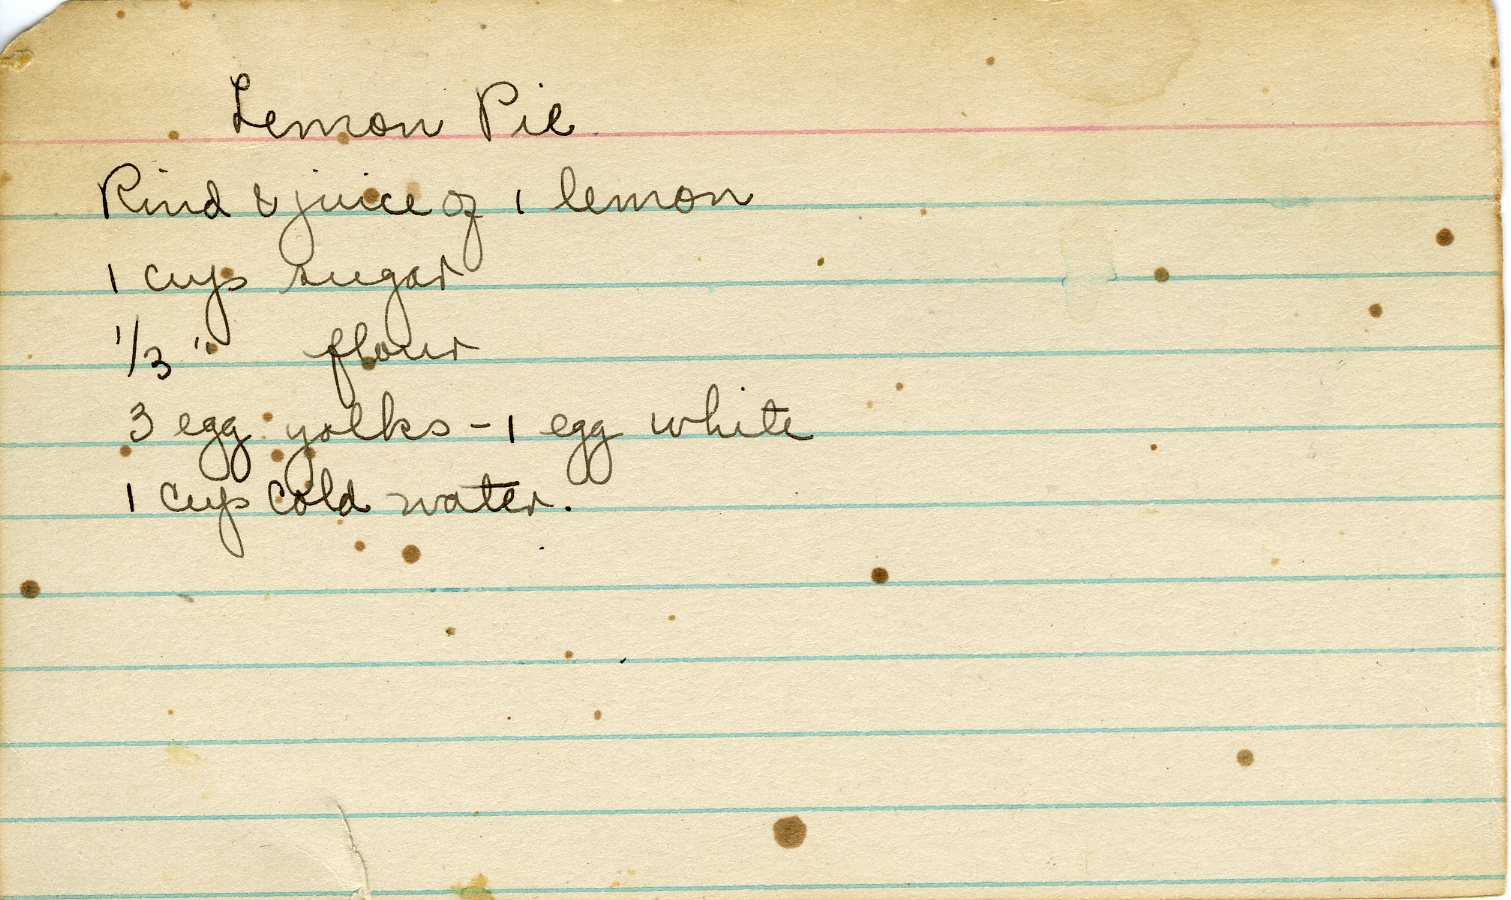 Lemon Pie
Rind & juice of 1 lemon
1 cup sugar
1/3 " flour
3 egg yolks - 1 egg white
1 cup cold water.